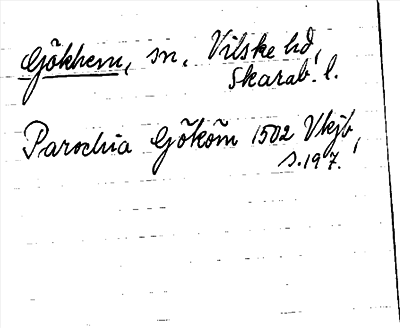 Gökhem, sn, Vilske hd,
Skarab. l.
Parochia Gökōm 1502 Vkjb,
s. 197.